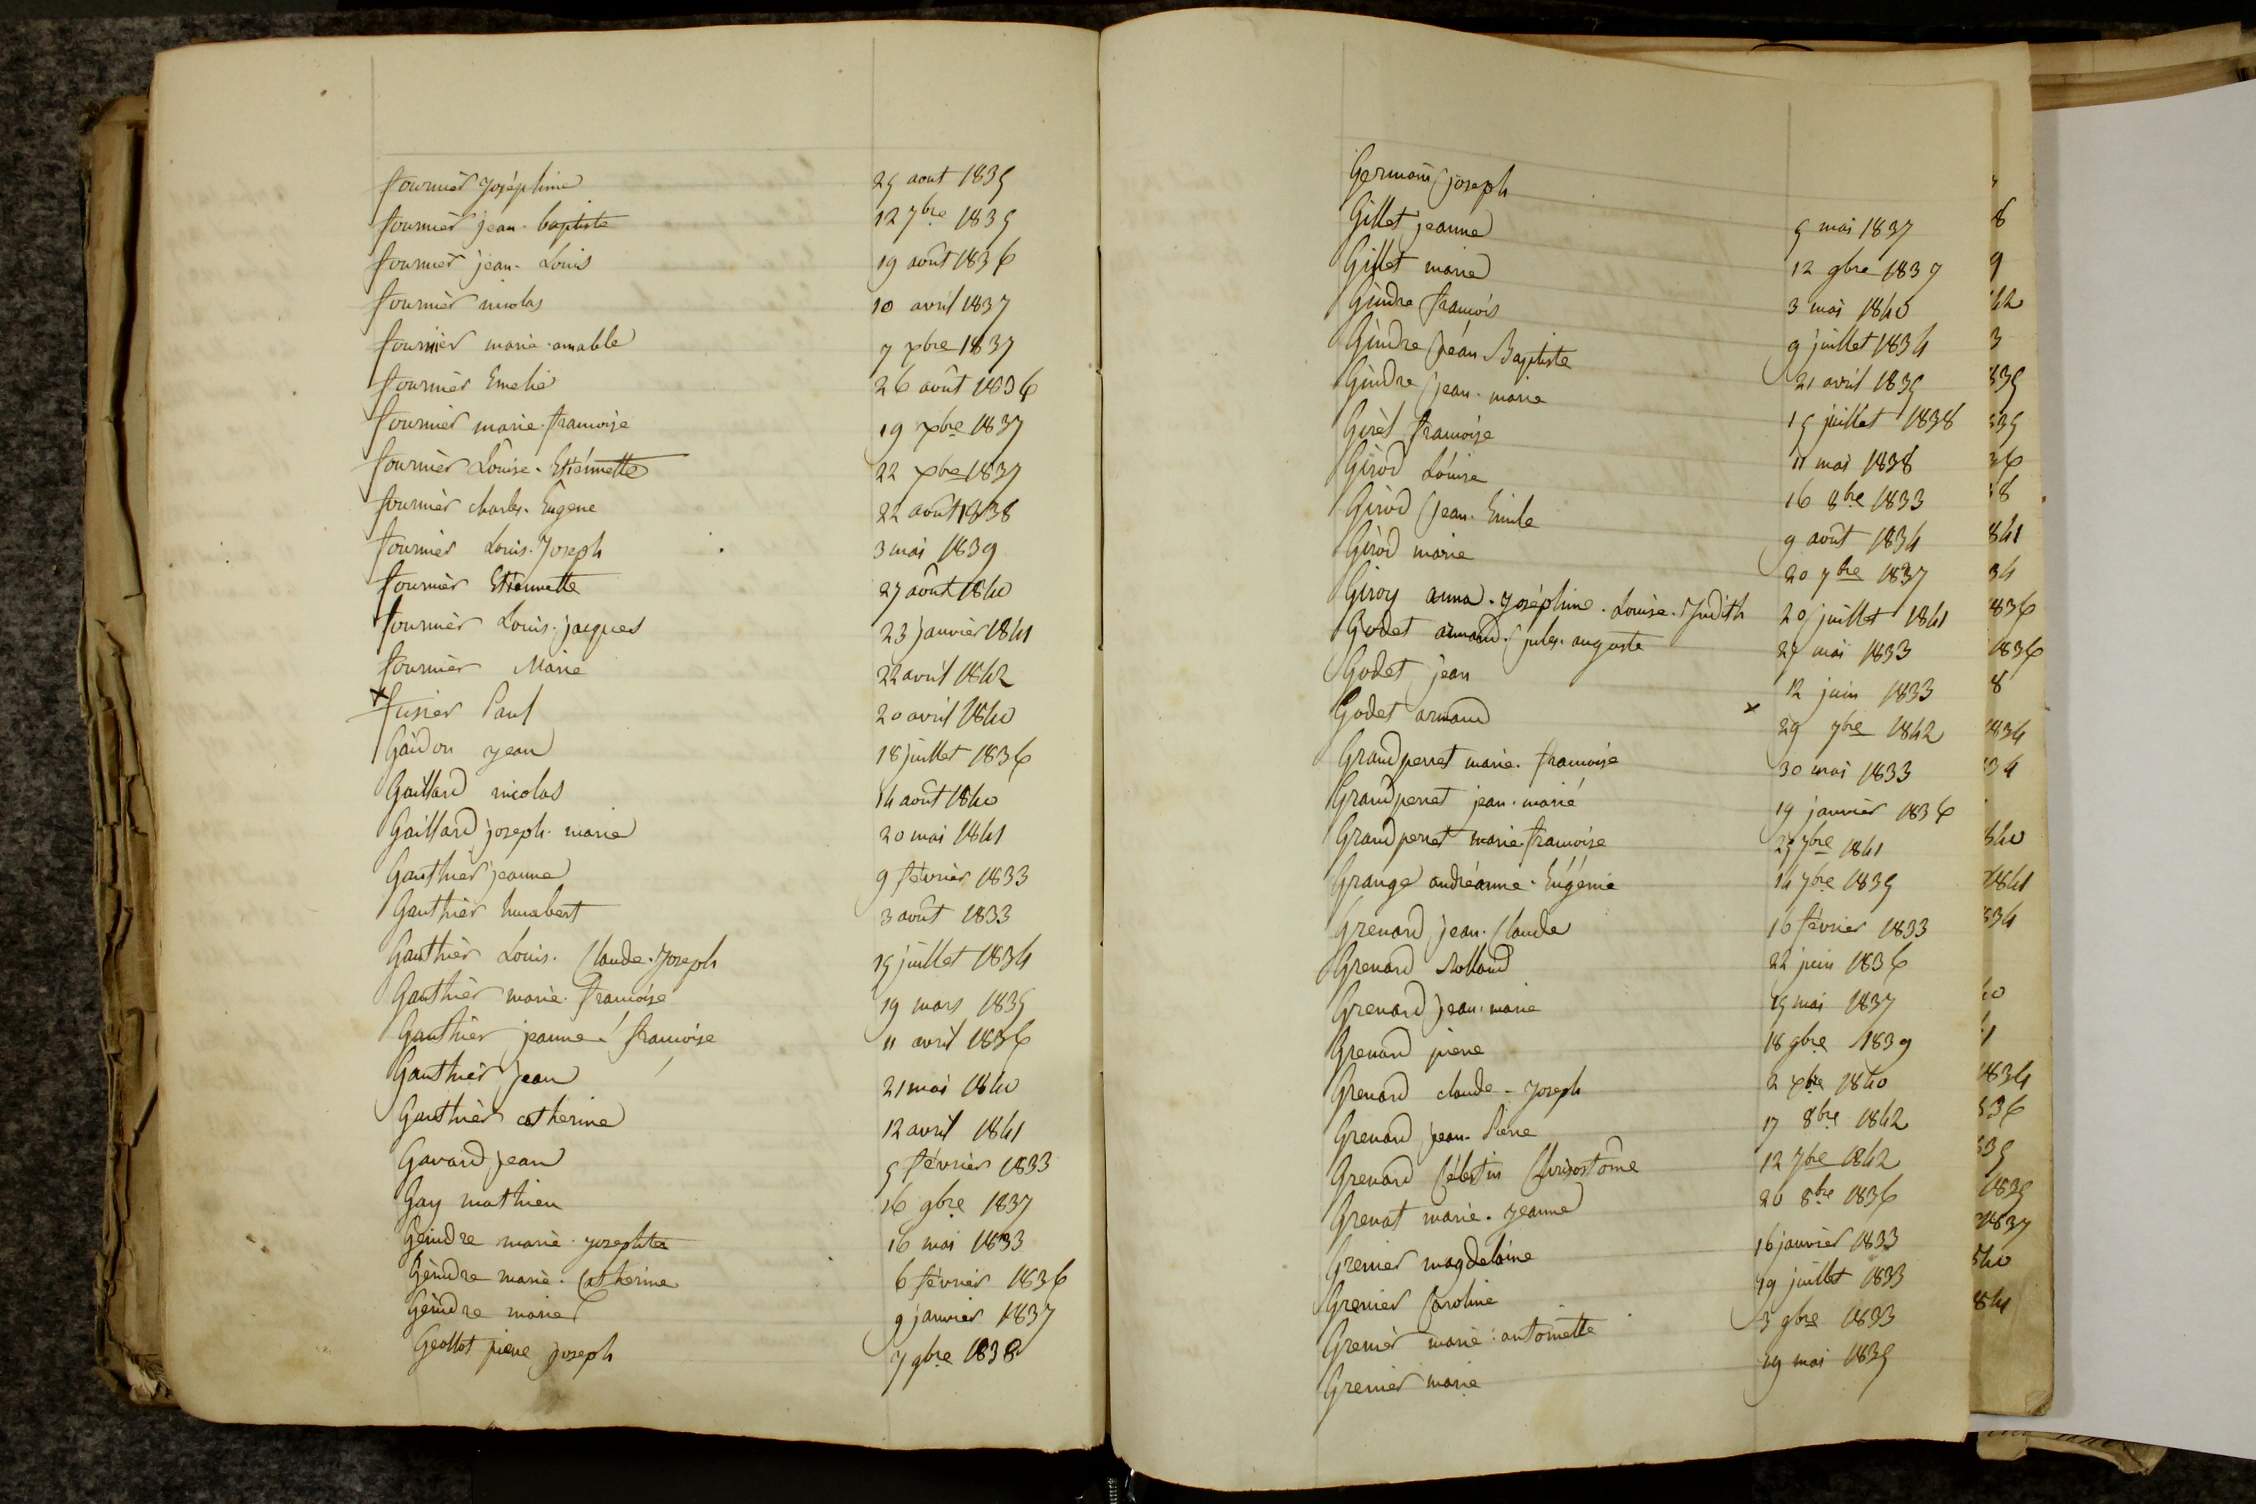 fournier joséphine 25 aout 1835
fournier jean-baptiste 12 7bre 1835
fournier jean-Louis 19 août 1836
fournier nicolas 10 avril 1837
fournier marie-amable 7 xbre 1837
fournier Emelie 26 août 1836
fournier marie-francoise 19 xbre 1837
fournier Louise-Etiénnette 22 xbre 1837
fournier charles-Eugene 22 août 1838
fournier Louis-Joseph 3 mai 1839
fournier Etiennette 27 août 1840
fournier Louis-jacques 23 janvier 1841
fournier Marie 22 avril 1842
x fusier Paul 20 avril 1840
Gaidon jean 18 juillet 1836
Gaillard nicolas 14 août 1840
Gaillard joseph-marie 20 mai 1841
Gauthier jeanne 9 février 1833
Gauthier humbert 3 août 1833
Gauthier Louis-Claude-Joseph 15 juillet 1834
Gauthier marie-francoise 19 mars 1835
Gauthier jeanne-francoise 11 avril 1836
Gauthier jean 21 mai 1840
Gauthier catherine 12 avril 1841
Gavard jean 5 février 1833
Gay mathieu 16 9bre 1837
Geindre marie-josephte 16 mai 1833
Geindre marie-Catherine 6 février 1836
Geindre marie 9 janvier 1837
Geollot pierre joseph 7 9bre 1838
Germain joseph
Gillet jeanne 5 mai 1837
Gillet marie 12 9bre 1837
Gindre francois 3 mai 1840
Gindre jean Baptiste 9 juillet 1834
Gindre jean-marie 21 avril 1835
Girel francoise 15 juillet 1838
Girod Louise 11 mai 1838
Girod jean-Emile 16 8bre 1833
Girod marie 9 août 1834
Giroy anna-joséphine-Louise-Judith 20 7bre 1837
Godet armand-jules-auguste 20 juillet 1841
Godet jean 27 mai 1833
Godet armand 12 juin 1833
x 29 7bre 1842
Grandperret marie-francoise 30 mai 1833
Grandperret jean-marié 19 janvier 1836
Grandperret marie francoise 25 7bre 1841
Grange andréanne-Eugénie 14 7bre 1835
Grenard jean-Claude 16 février 1833
Grenard Rolland 22 juin 1836
Grenard jean-marie 15 mai 1837
Grenard pierre 18 9bre 1839
Grenard claude-Joseph 2 xbre 1840
Grenard jean-Pierre 17 8bre 1842
Grenard Célestin Chrisostôme 12 7bre 1842
Grenat marie-jeanne 20 8bre 1836
Grenier magdelaine 16 janvier 1833
Grenier Caroline 19 juillet 1833
Grenier marie-antoinette 3 9bre 1833
Grenier marie 29 mai 1835
8
9
42
3
835
835
36
38
841
34
836
1836
8
1834
34
840
1841
834
40
1834
836
835
1835
1837
840
841